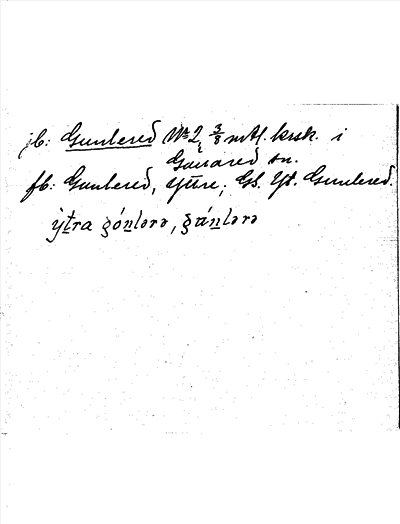 jb: Gunlered № 2, 3/8 mtl. krsk. i
Gunnared sn.
fb: Gunlered, Yttre; GS. Yt. Gunlered.
ỳt̲ra gón̲lərə, gún̲lərə